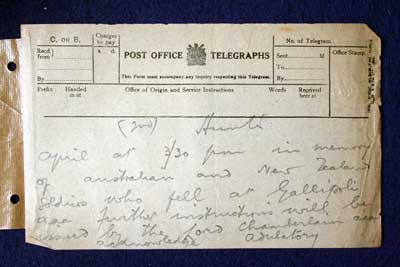 C. or B.
Charges to pay
s. d.
POST OFFICE TELEGRAPHS
This Form must accompany any inquiry respecting this Telegram.
No. of Telegram.
Office Stamp.
Recd from
By
Sent M
To
By
Prefix Handed in at
Office of Origin and Service Instructions
Words Received here at
(2nd)
April at 3/30 pm in memory
of australian and New Zealand
soldiers who fell at Gallipoli
aaa further instructions will be
issued by the Lord Chamberlain aaa
acknowledge